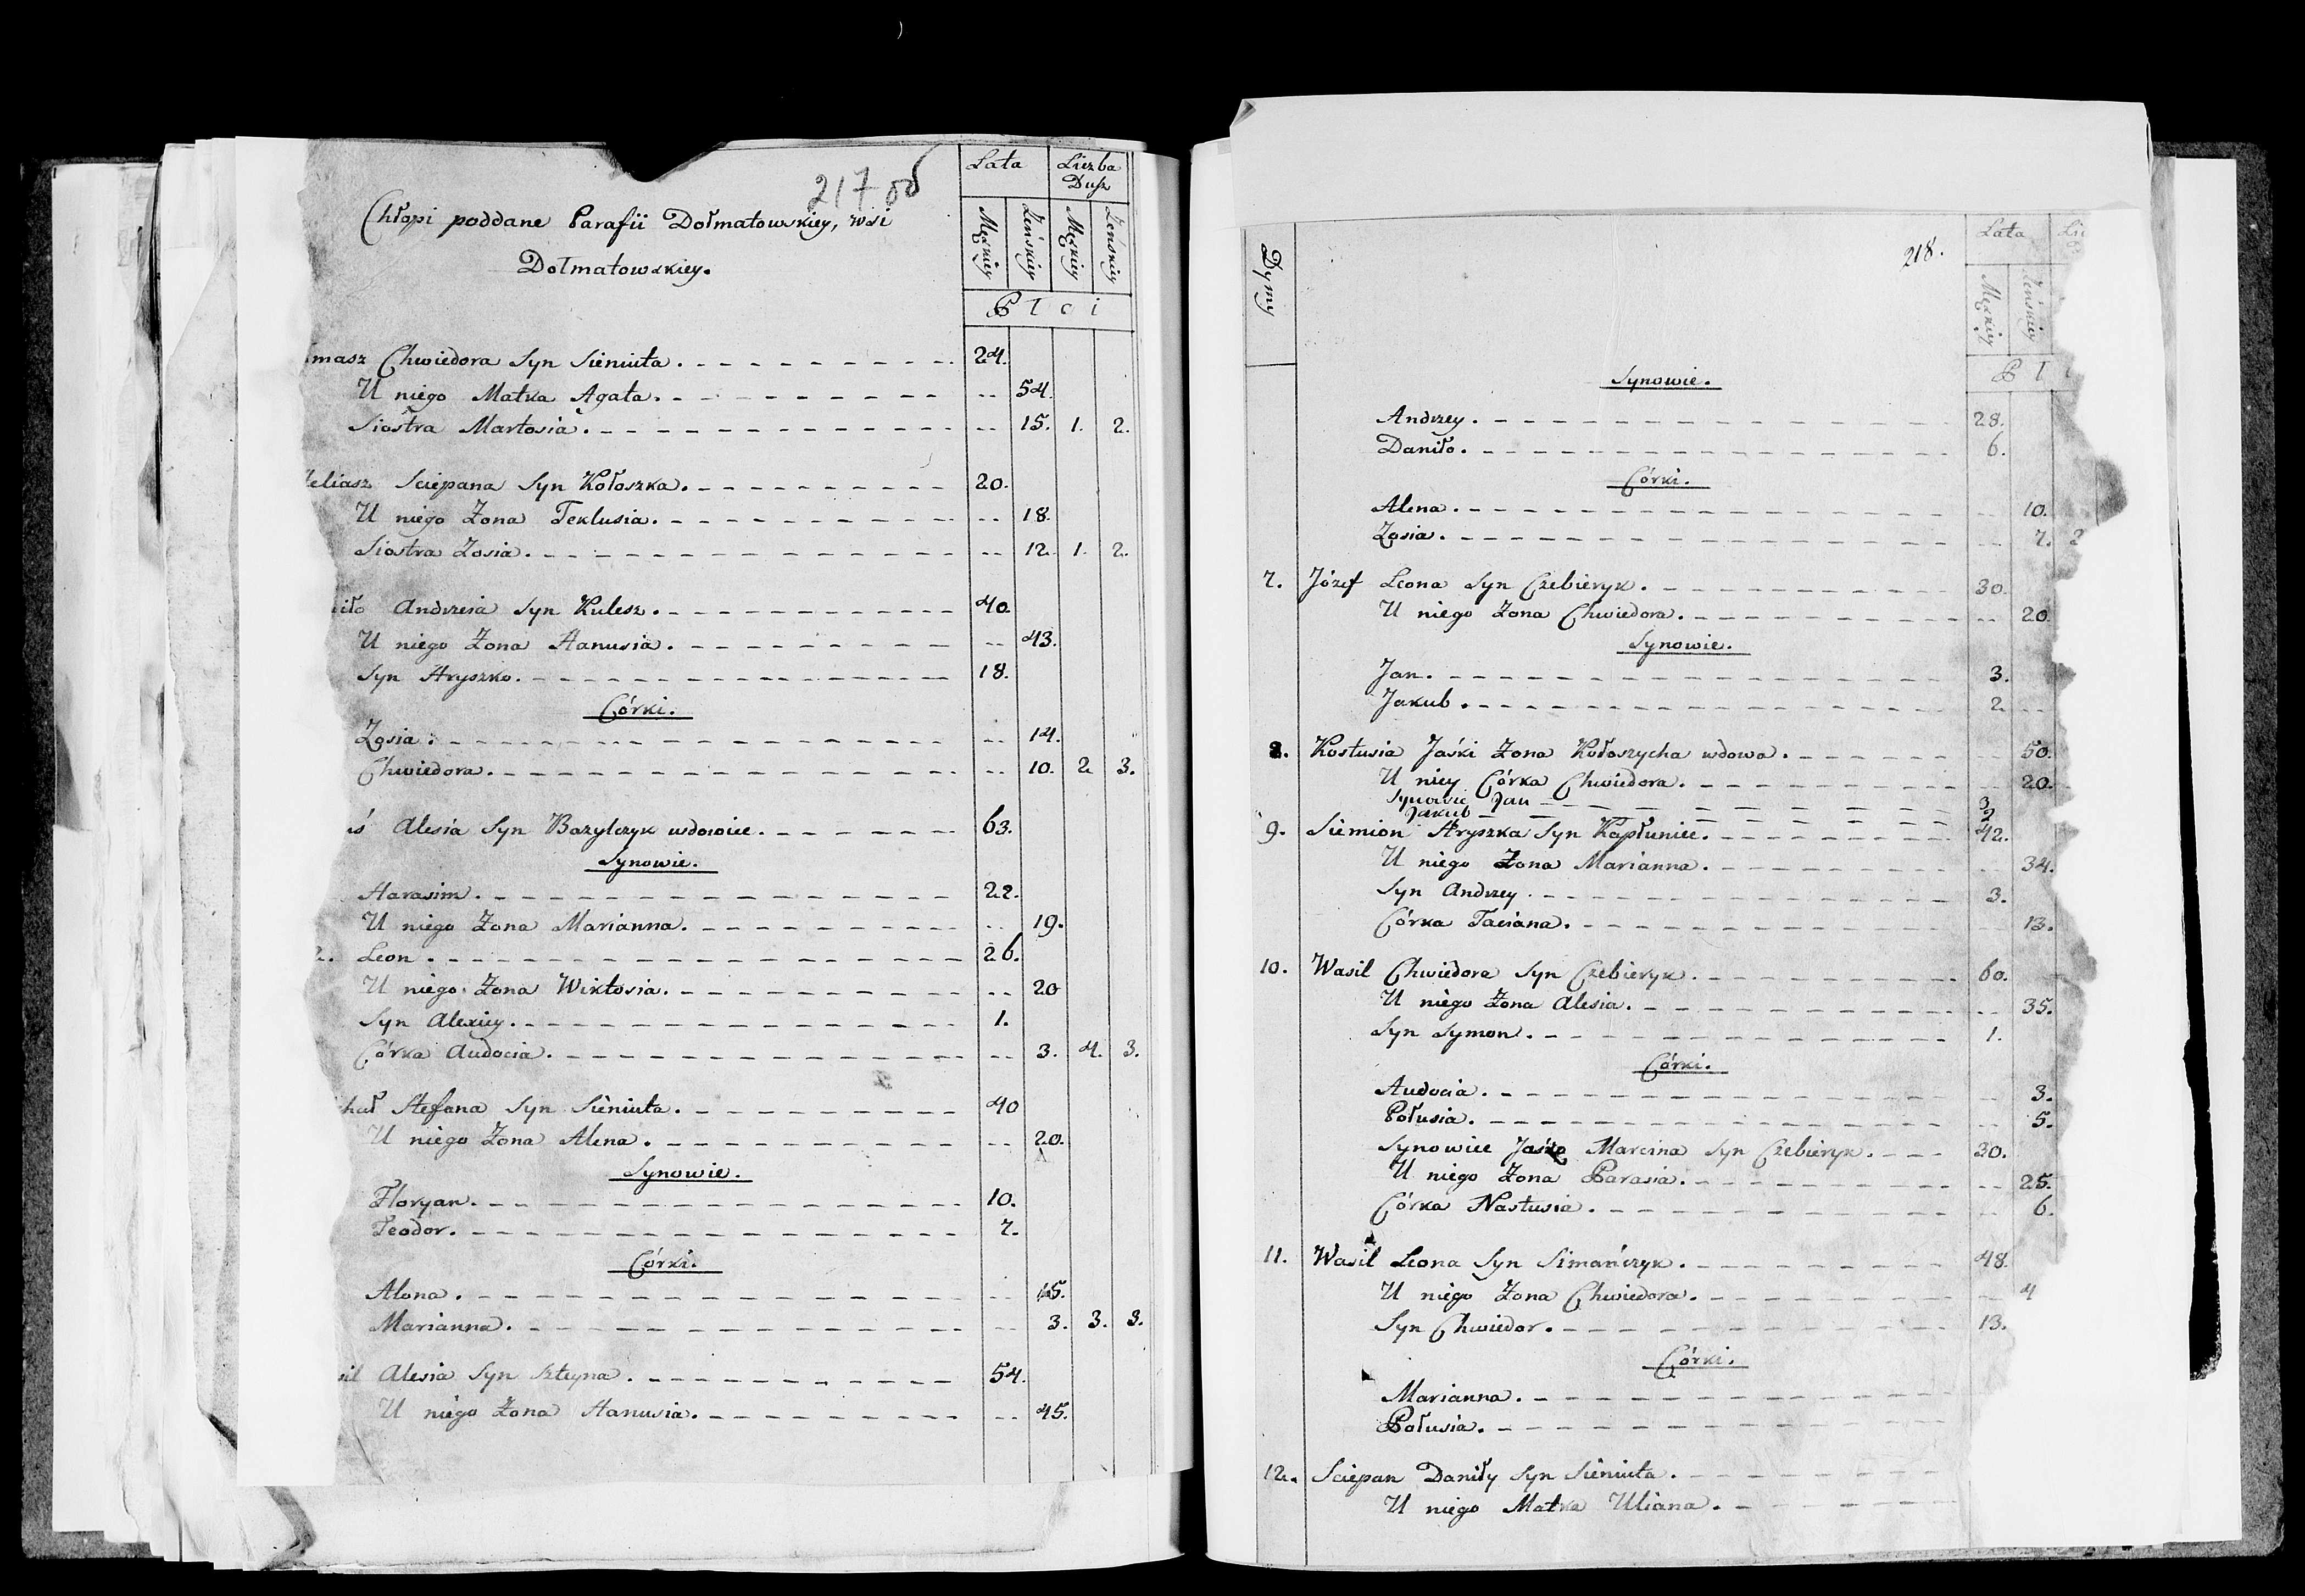 217 об
Lata Liczba Dusz
Męzkiey Żeńskiey Męzkiey Żeńskiey
Płci
Chłopi poddane Parafii Dołmatowskiey, wsi
Dołmatowskiey.
masz Chwiedora Syn Sieniuta. 24.
U niego Matka Agata. 54.
Siostra Martosia. 15. 1. 2.
eliasz Sciepana Syn Kołoszka. 20.
U niego Żona Teklusia. 18.
Siostra Zosia. 12. 1. 2.
iło Andrzeia Syn Kulesz. 40.
U niego Żona Hanusia. 43.
Syn Hryszko. 18.
Córki.
Zosia. 14.
Chwiedora. 10. 2. 3.
iś Alesia Syn Bazylczyk wdowiec. 63.
Synowie.
Harasim. 22.
U niego Żona Marianna. 19.
2. Leon. 26.
U niego Żona Wiktosia. 20
Syn Alexiey. 1.
Córka Audocia. 3. 4. 3.
chał Stefana Syn Sieniuta. 40
U niego Żona Alena. 20.
Synowie.
Floryan. 10.
Teodor. 7.
Córki.
Alona. 15.
Marianna. 3. 3. 3.
sil Alesia Syn Szteyna. 54.
U niego Żona Hanusia. 45.
218.
Dymy
Lata
Męzkiey Żeńskiey
Synowie.
Andrzey. 28.
Daniło. 6.
Córki.
Alena. 10.
Zosia. 7. 2
7. Józef Leona Syn Czebieryk. 30.
U niego Żona Chwiedora. 20.
Synowie.
Jan. 3.
Jakub. 2
8. Kostusia Jaśki Żona Kołoszycha wdowa. 50.
U niey Córka Chwiedora. 20.
Synowie Jan 3
Jakub 2
9. Siemion Hryszka Syn Kapłuniec. 42.
U niego Żona Marianna. 34.
Syn Andrzey. 3.
Córka Taciana. 13.
10. Wasil Chwiedora Syn Czebieryk. 60.
U niego Żona Alesia. 35.
Syn Symon. 1.
Córki.
Audocia. 3.
Połusia. 5.
Synowiec Jaśko Marcina Syn Czebieryk. 30.
U niego Żona Parasia. 25.
Córka Nastusia. 6.
11. Wasil Leona Syn Simańczyk. 48.
U niego Żona Chwiedora. 4
Syn Chwiedor. 13.
Córki.
Marianna.
Połusia.
12. Sciepan Daniły Syn Sieniuta.
U niego Matka Uliana.